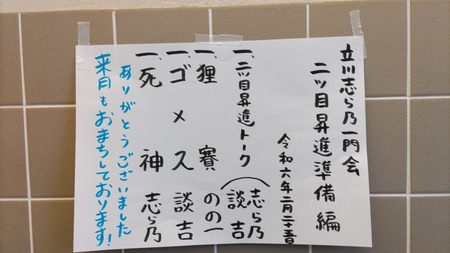 立川志ら乃一門会
二ツ目昇進準備編
令和六年二月二十五日
一、二ツ目昇進トーク 志ら乃 談吉
一、狸賽 のの一
一、ゴメス 談吉
一、死神 志ら乃
ありがとうございました
来月もおまちしております!